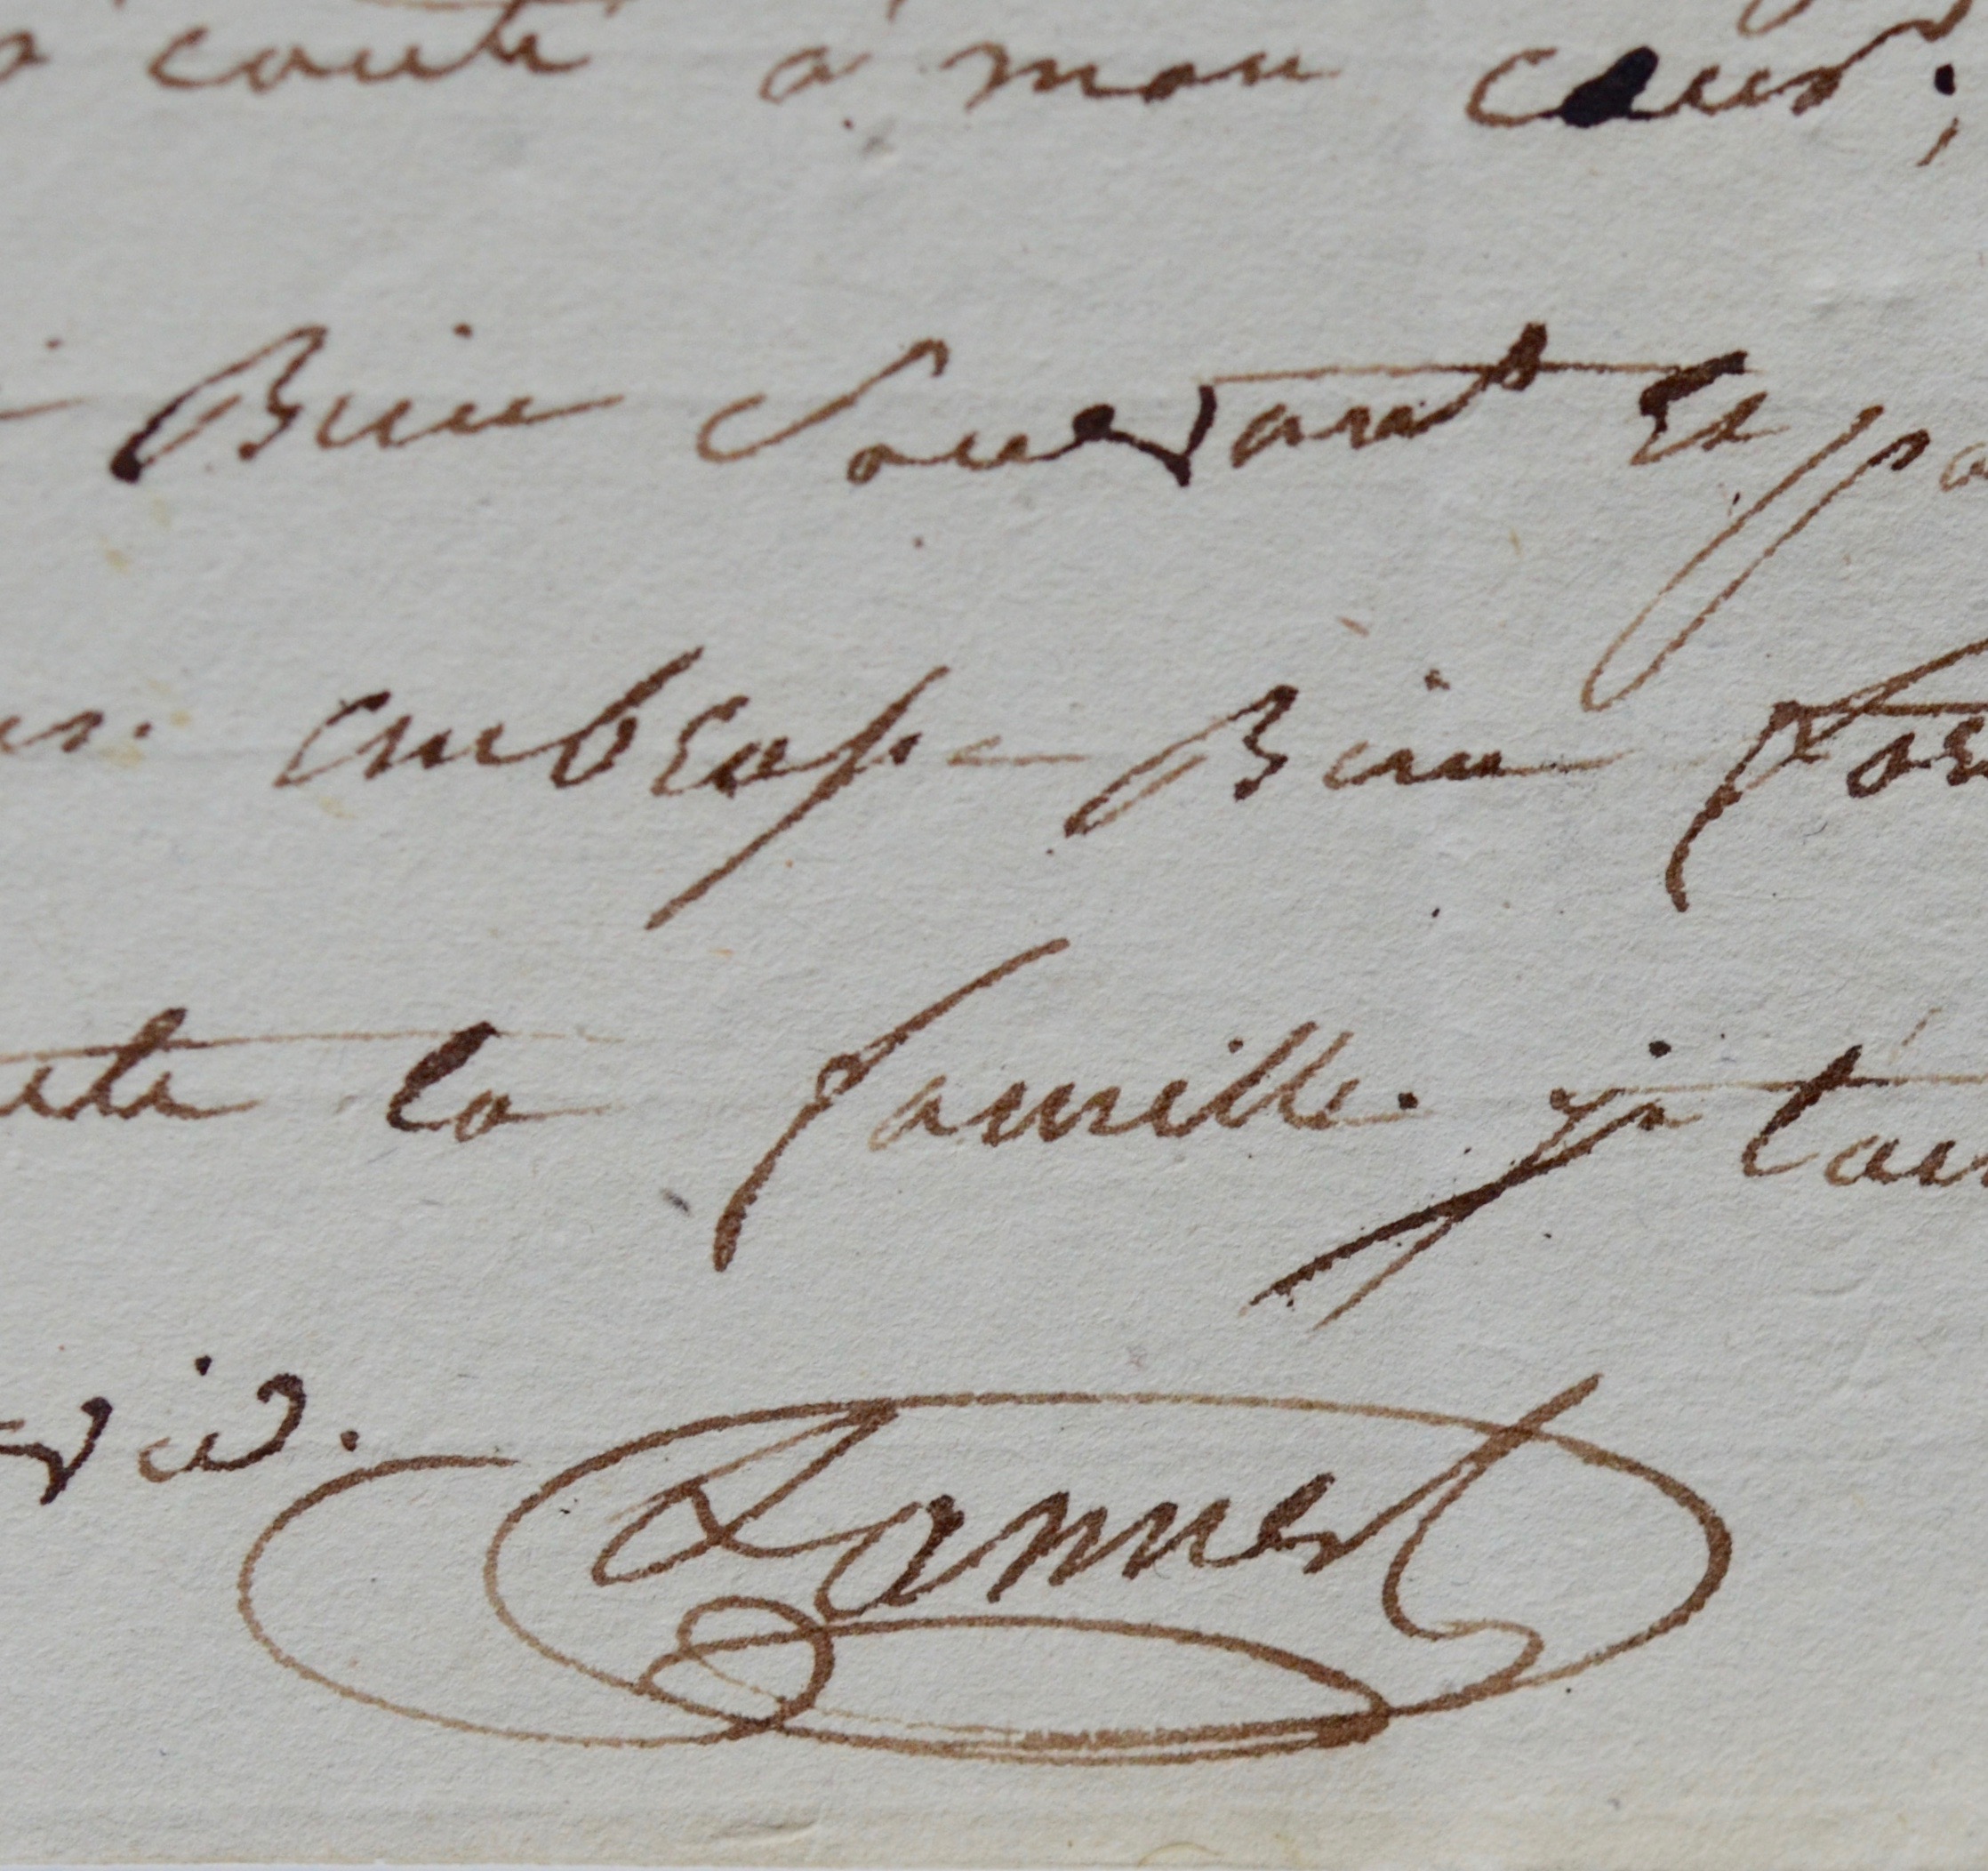 couté a mon cœur;
Bien Souvant et pa
embrasse Bien for
la famille. je t'aim
vie.
Lannes